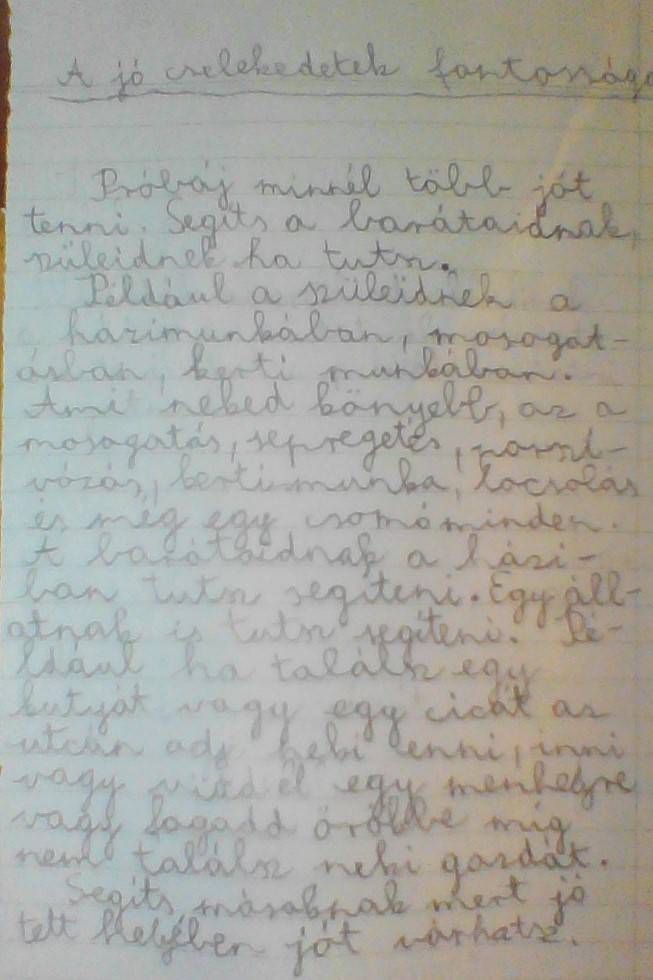 A jó cselekedetek fontossága
Próbáj minnél több jót
tenni. Segíts a barátaidnak,
szüleidnek ha tutsz.
Például a szüleidnek a
házimunkában, mosogat-
ásban, kerti munkában.
Ami neked könyebb, az a
mosogatás, sepregetés, porszí-
vózás, kerti munka, locsolás
és még egy csomóminden.
A barátaidnak a házi-
ban tutsz segíteni. Egy áll-
atnak is tutsz segíteni. Pé-
ldául ha találsz egy
kutyát vagy egy cicát az
utcán adj neki enni, inni
vagy vidd el egy menhejre
vagy fogadd örökbe míg
nem találsz neki gazdát.
Segíts másoknak mert jó
tett helyében jót várhatsz.